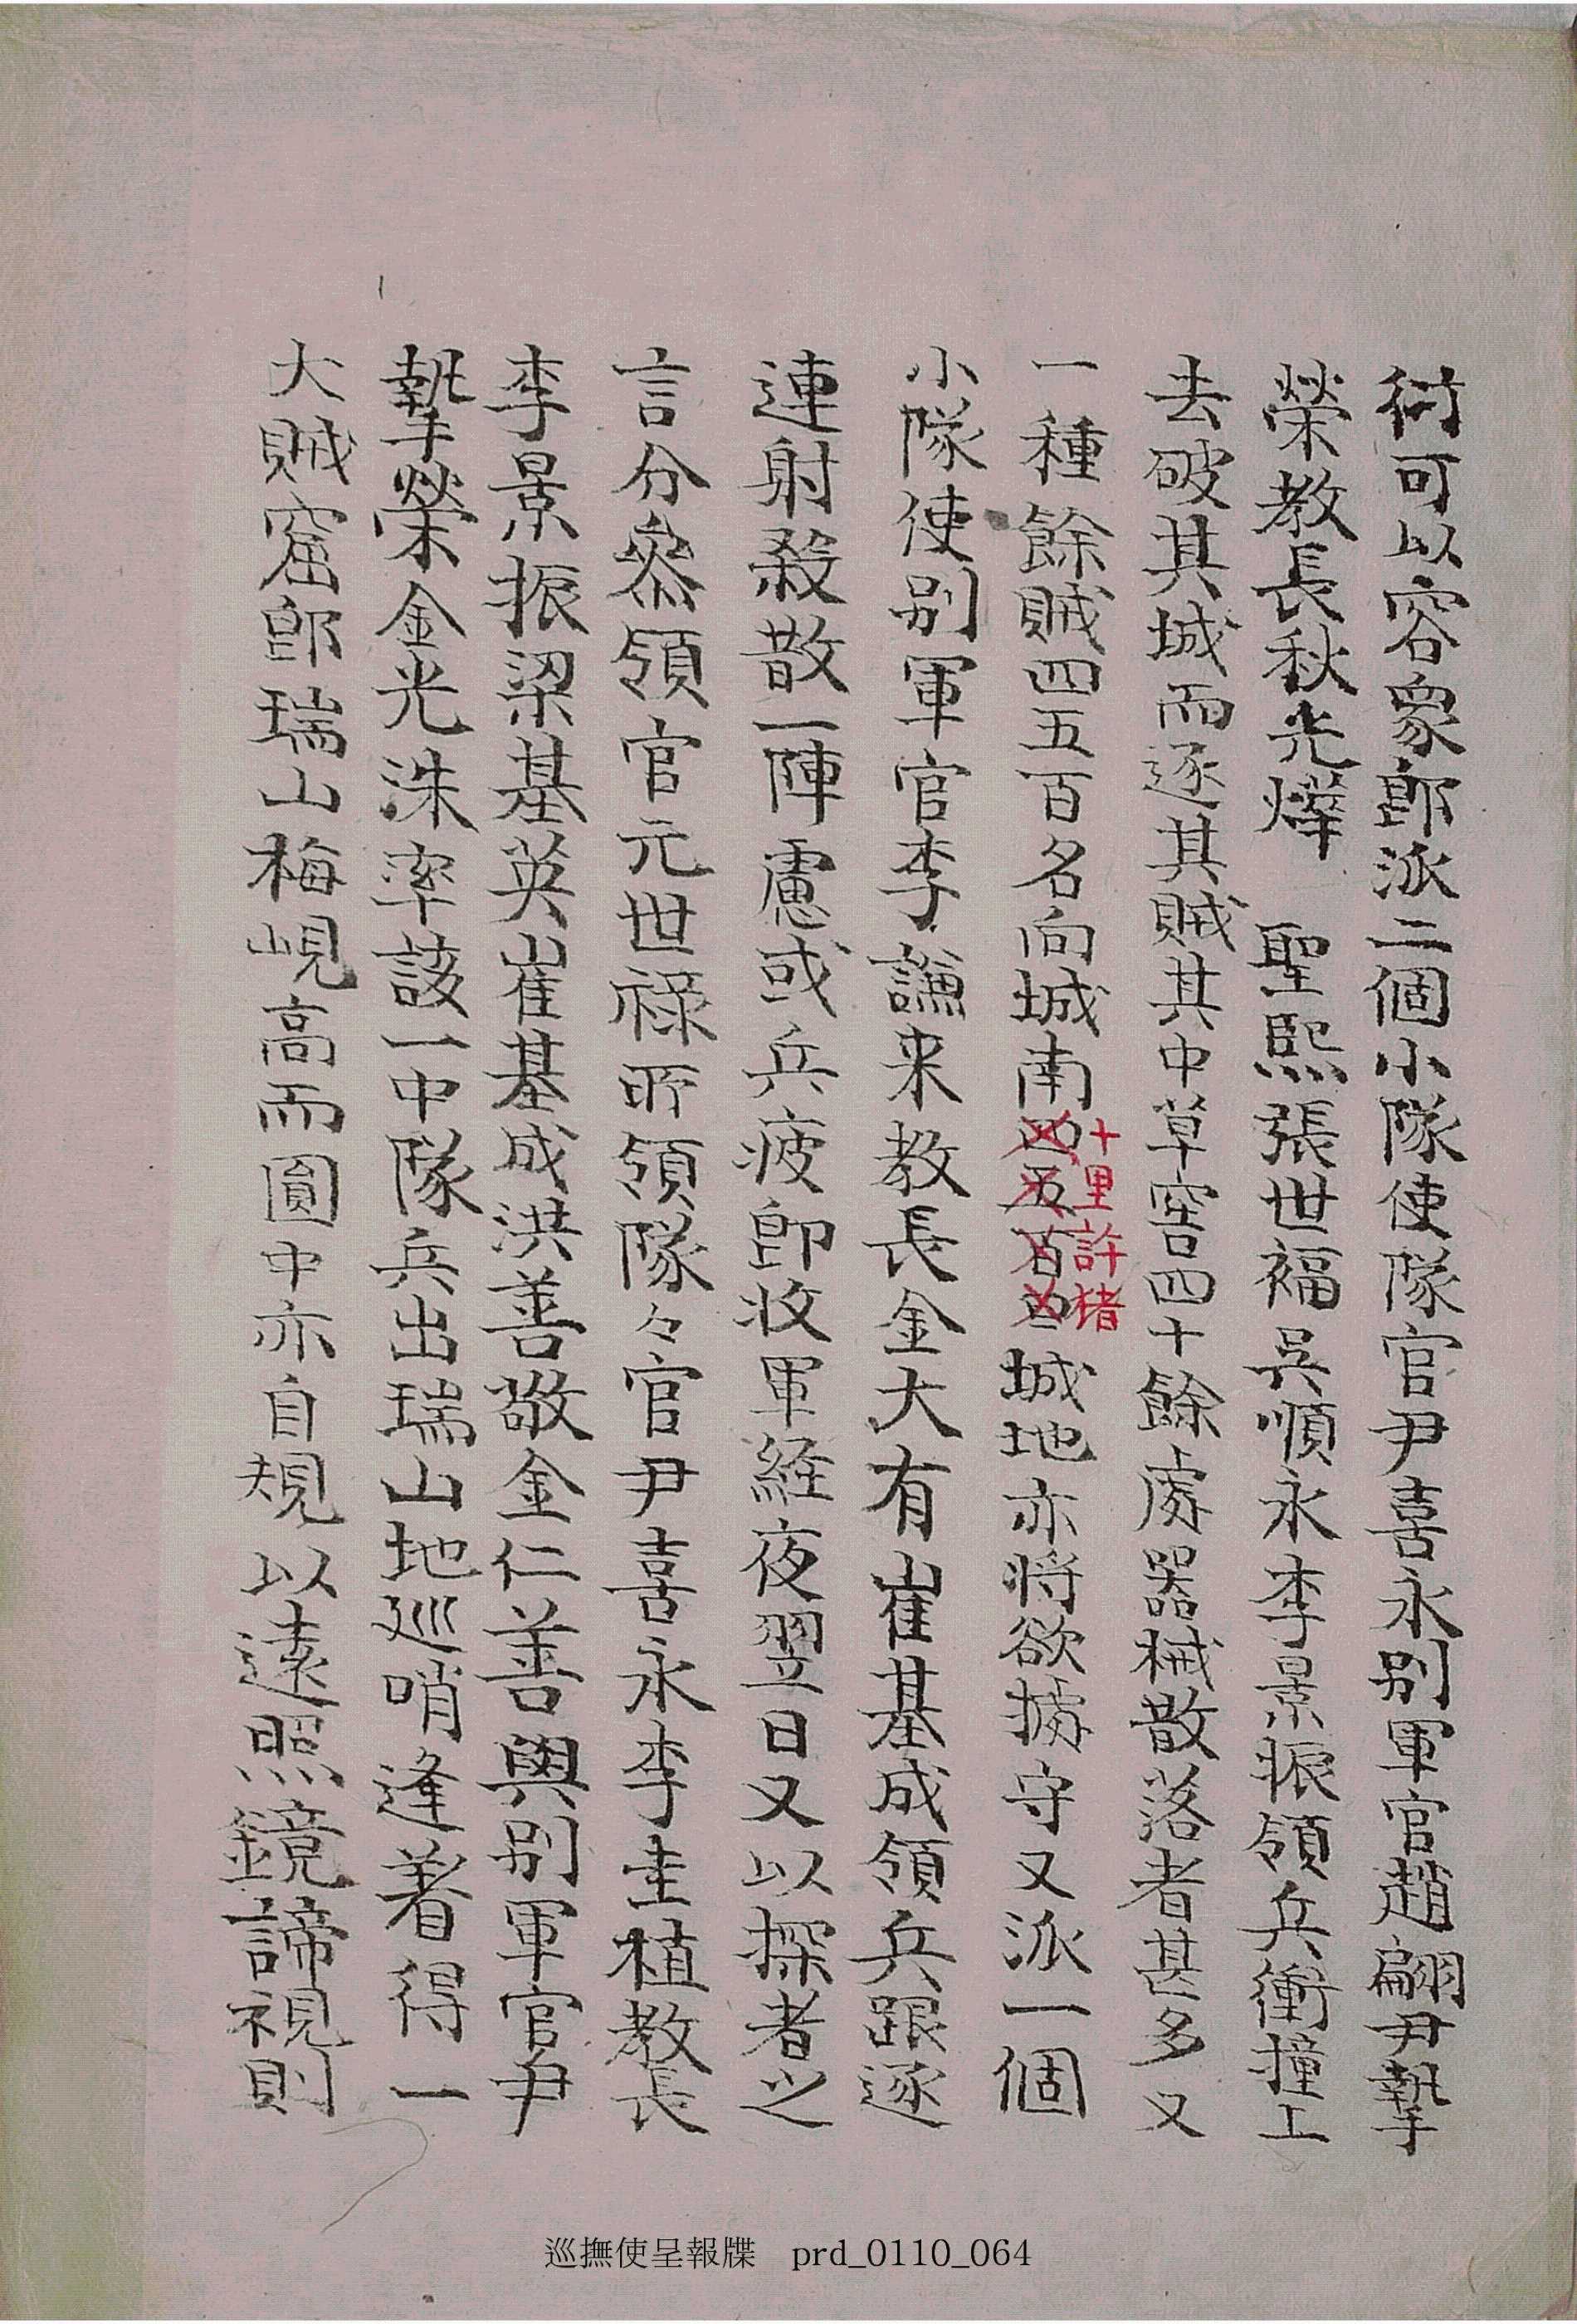 衍可以容衆卽派二個小隊使隊官尹喜永別軍官趙翩尹摯
榮敎長秋光燁 聖熙張世福吳順永李景振領兵衝撞上
去破其城而逐其賊其中草窖四十餘處器械散落者甚多又
一種餘賊四五百名向城南四五百四城地亦將欲據守又派一個
十里許猪
小隊使別軍官李謙來敎長金大有崔基成領兵跟逐
連射殺散一陣慮或兵疲卽收軍経夜翌日又以探者之
言分叅領官元世祿所領隊々官尹喜永李圭植敎長
李景振梁基英崔基成洪善敬金仁善與別軍官尹
摯榮金光洙率該一中隊兵出瑞山地巡哨逢着得一
大賊窟卽瑞山梅峴高而圓中亦自規以遠照鏡諦視則
巡撫使呈報牒 prd_0110_064